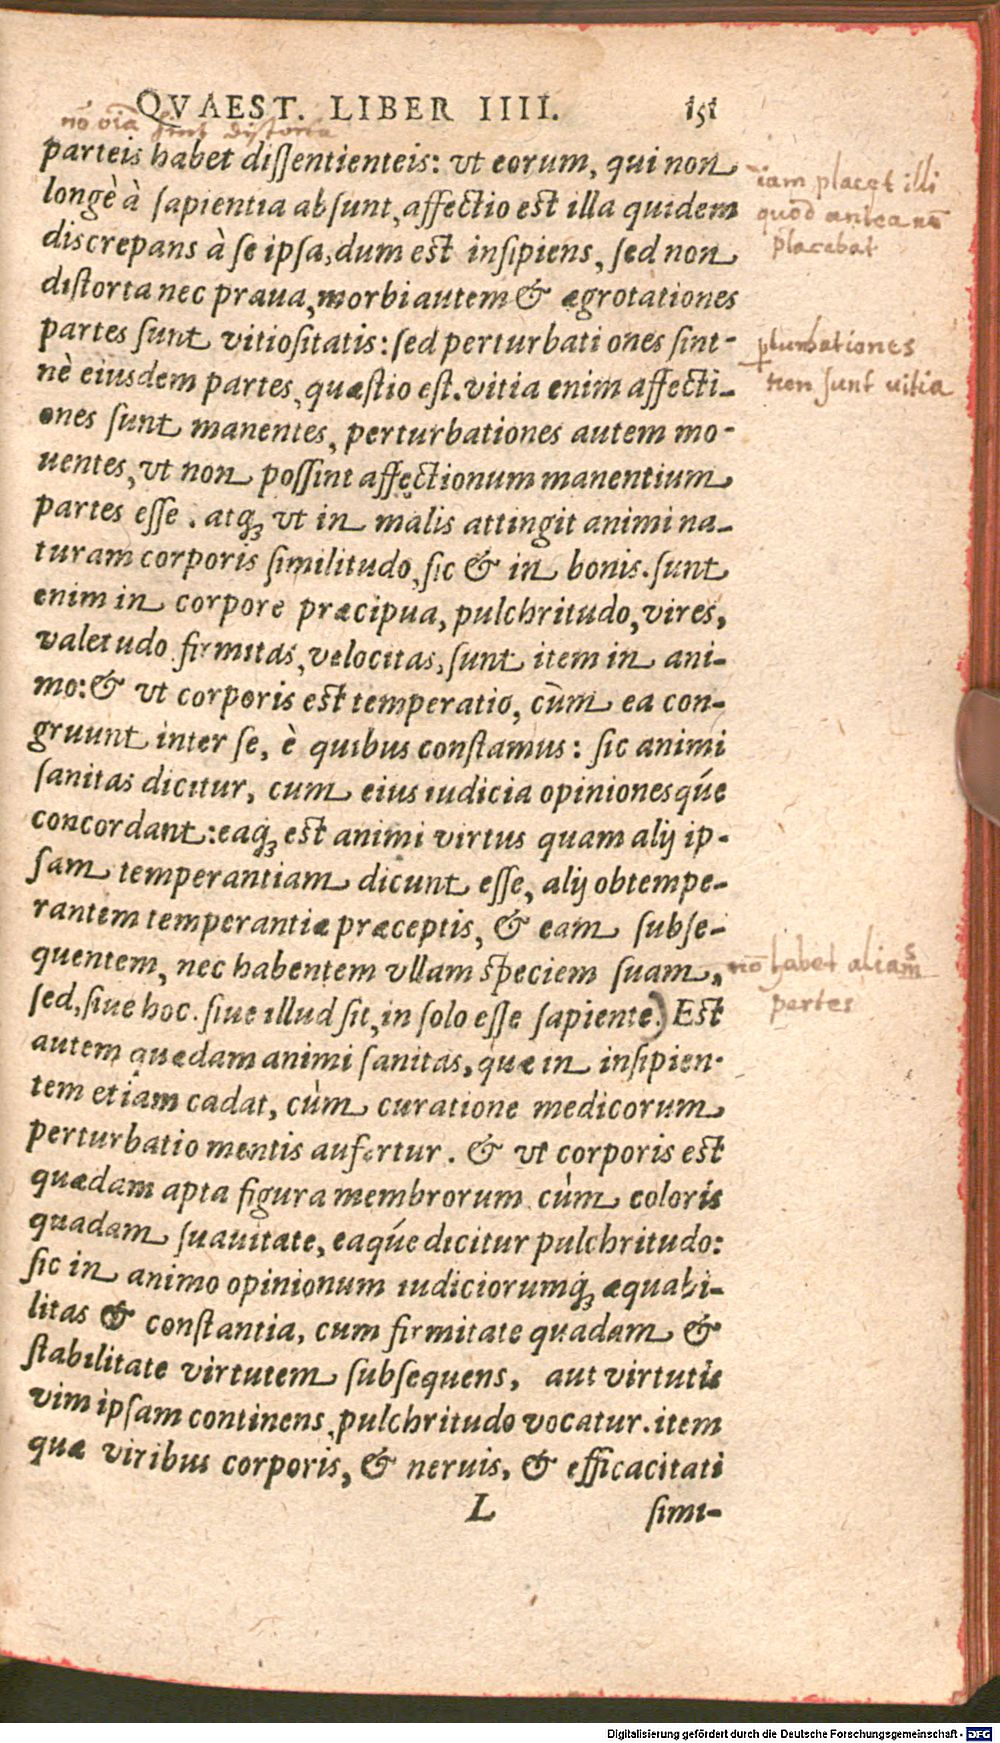 QVAEST. LIBER IIII. 151
nō oīa sunt distorta
parteis habet dissentienteis: vt eorum, qui non
longè à sapientia absunt, affectio est illa quidem
discrepans à se ipsa, dum est insipiens, sed non
distorta nec praua, morbi autem & ægrotationes
partes sunt vitiositatis: sed perturbationes sint-
nè eiusdem partes, quæstio est. vitia enim affecti-
ones sunt manentes, perturbationes autem mo-
uentes, vt non possint affectionum manentium
partes esse. atq; vt in malis attingit animi na-
turam corporis similitudo, sic & in bonis. sunt
enim in corpore præcipua, pulchritudo, vires,
valetudo firmitas, velocitas, sunt item in ani-
mo: & vt corporis est temperatio, cùm ea con-
gruunt inter se, è quibus constamus: sic animi
sanitas dicitur, cum eius iudicia opinionesqúe
concordant: eaq; est animi virtus quam alij ip-
sam temperantiam dicunt esse, alij obtempe-
rantem temperantiæ præceptis, & eam subse-
quentem, nec habentem vllam speciem suam,
sed, siue hoc. siue illud sit, in solo esse sapiente.) Est
autem quædam animi sanitas, quæ in insipien-
tem etiam cadat, cùm curatione medicorum
perturbatio mentis aufertur. & vt corporis est
quædam apta figura membrorum cùm coloris
quadam suauitate, eaqúe dicitur pulchritudo:
sic in animo opinionum iudiciorumq́; æquabi-
litas & constantia, cum firmitate quadam &
stabilitate virtutem subsequens, aut virtutis
vim ipsam continens, pulchritudo vocatur. item
quæ viribus corporis, & neruis, & efficacitati
L simi-
iam placet illi
quod antea nō
placebat
pturbationes
non sunt uitia
nō habet alias
partes
Digitalisierung gefördert durch die Deutsche Forschungsgemeinschaft - DFG